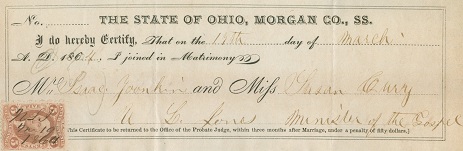 No. THE STATE OF OHIO, MORGAN CO., SS.
I do hereby Certify, That on the 17th day of March
A. D. 1864, I joined in Matrimony
Mr. Isaac and Miss Susan Curry
A L Jones Minister of the Gospel
(This Certificate to be returned to the Office of the Probate Judge, within three months after Marriage, under a penalty of fifty dollars.)